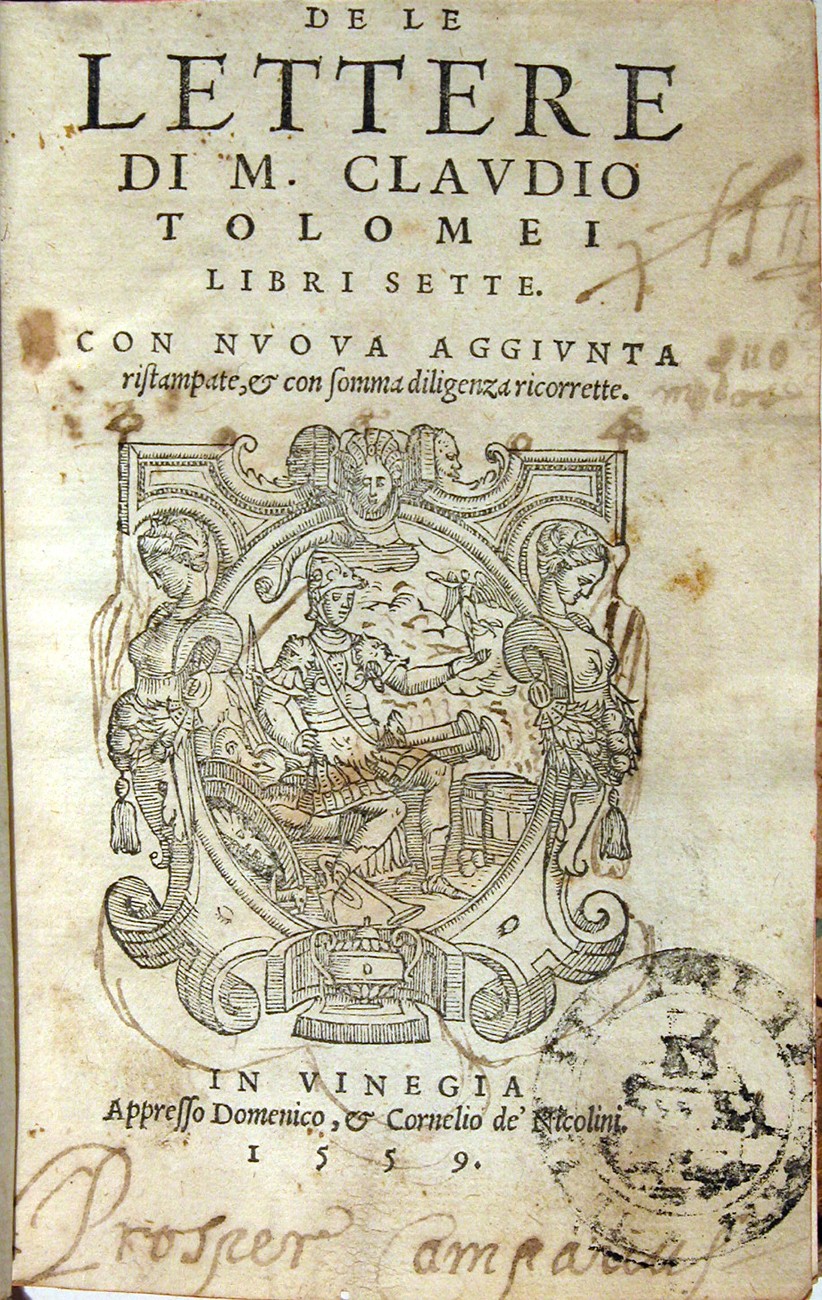 DE LE
LETTERE
DI M. CLAVDIO
TOLOMEI
LIBRI SETTE.
CON NVOVA AGGIVNTA
riſtampate, & con ſomma diligenza ricorrette.
IN VINEGIA
Appreſſo Domenico, & Cornelio de' Nicolini.
1559.
Prosper